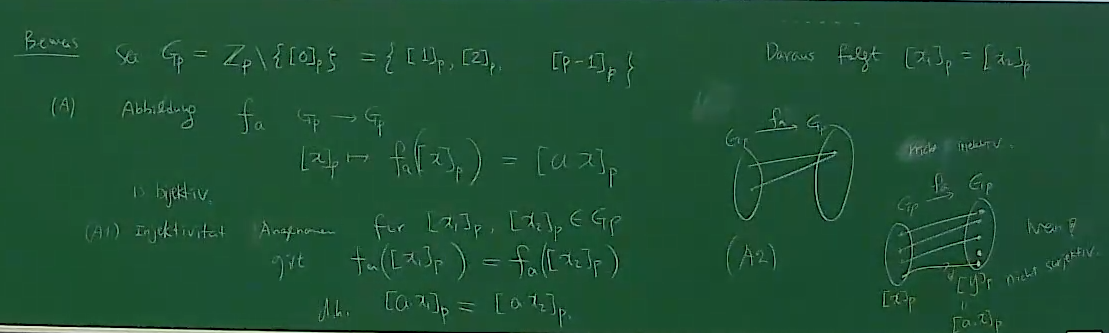 Beweis Sei Gp = Zp \ {[0]p} = { [1]p, [2]p, [p-1]p }
(A) Abbildung fa Gp → Gp
[x]p ↦ fa([x]p) = [a x]p
is bijektiv.
(A1) Injektivität Angenommen für [x1]p, [x2]p ∈ Gp
gilt fa([x1]p) = fa([x2]p)
d.h. [a x1]p = [a x2]p.
Daraus folgt [x1]p = [x2]p
fa
Gp → Gp
nicht injektiv.
(A2)
fa
Gp → Gp
nicht surjektiv.
[x]p
[y]p
=
[a.x]p